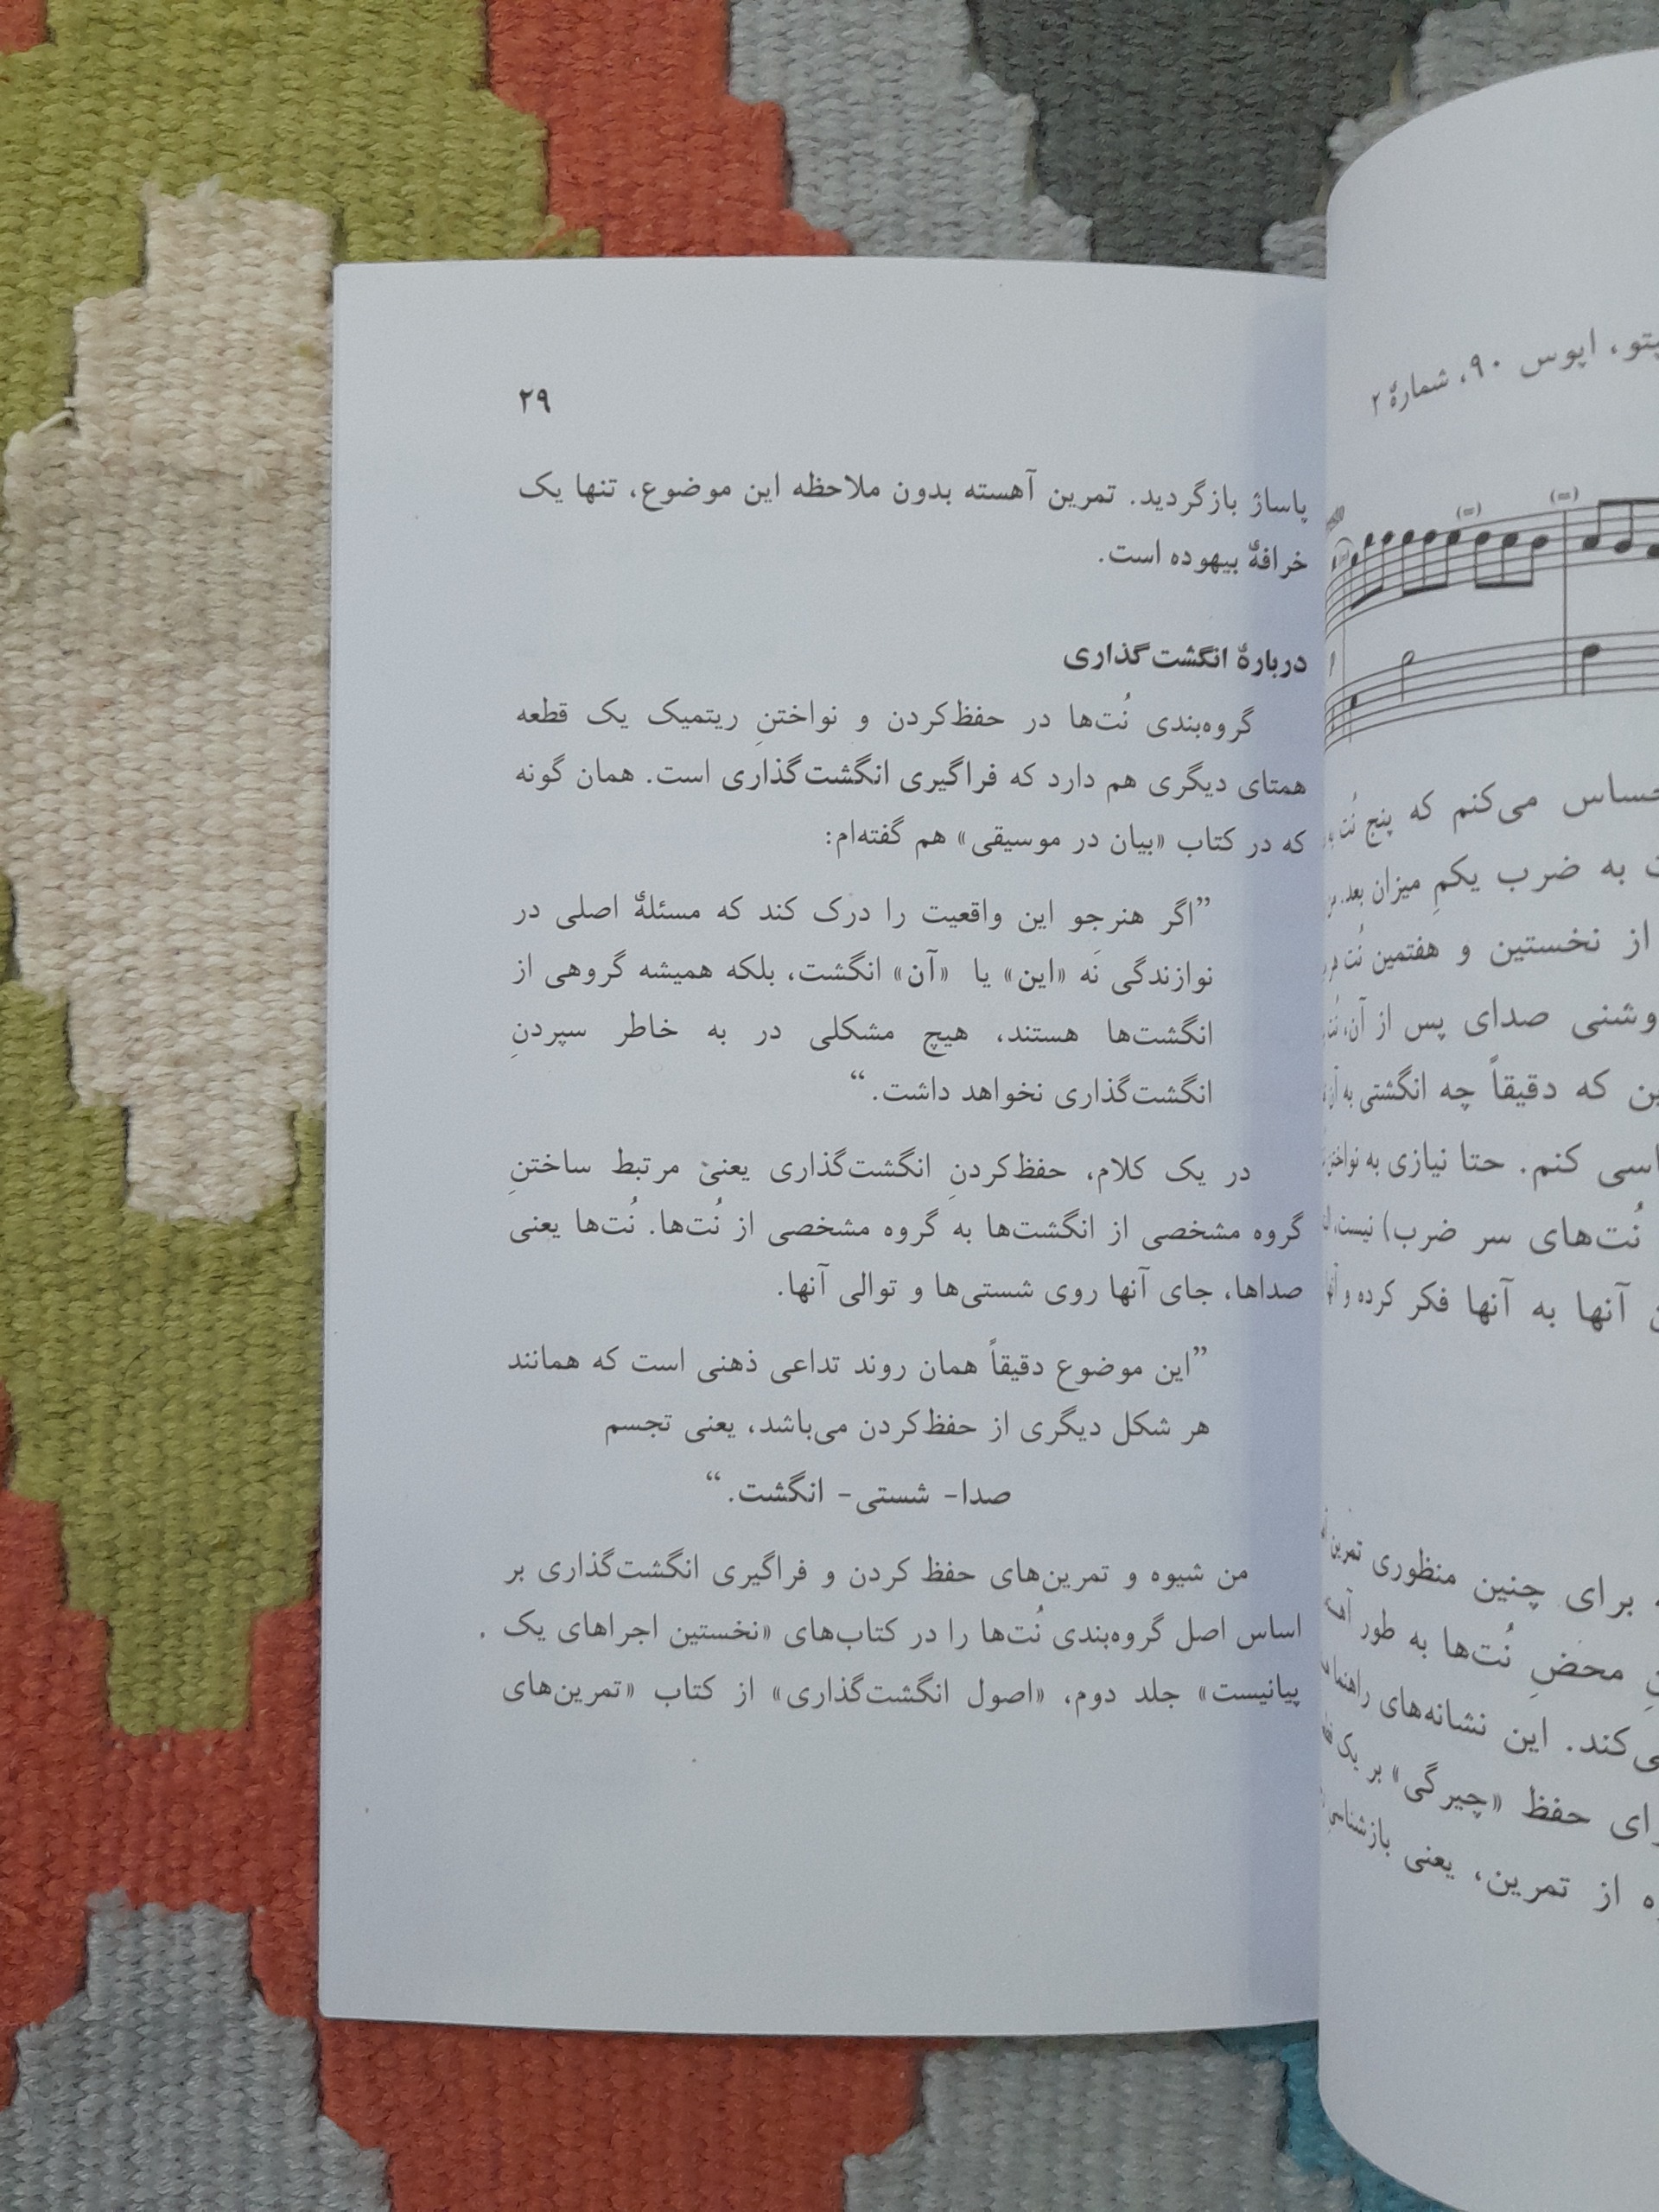 پتو، اپوس ۹۰، شمارهٔ ۲
حساس می‌کنم که پنج نُت
به ضرب یکمِ میزان بعد.
از نخستین و هفتمین نُت
وشنی صدای پس از آن،
ین که دقیقاً چه انگشتی به آن
اسی کنم. حتا نیازی به
نُت‌های سر ضرب) نیست،
آنها به آنها فکر کرده و
برای چنین منظوری تمرین
محضِ نُت‌ها به طور
ی‌کند. این نشانه‌های راهنما
رای حفظ «چیرگی» بر یک
ه از تمرین، یعنی بازشناسی
۲۹
پاساژ بازگردید. تمرین آهسته بدون ملاحظه این موضوع، تنها یک
خرافهٔ بیهوده است.
دربارهٔ انگشت‌گذاری
گروه‌بندی نُت‌ها در حفظ‌کردن و نواختنِ ریتمیک یک قطعه
همتای دیگری هم دارد که فراگیری انگشت‌گذاری است. همان گونه
که در کتاب «بیان در موسیقی» هم گفته‌ام:
”اگر هنرجو این واقعیت را درک کند که مسئلهٔ اصلی در
نوازندگی نَه «این» یا «آن» انگشت، بلکه همیشه گروهی از
انگشت‌ها هستند، هیچ مشکلی در به خاطر سپردنِ
انگشت‌گذاری نخواهد داشت.“
در یک کلام، حفظ‌کردنِ انگشت‌گذاری یعنی مرتبط ساختنِ
گروه مشخصی از انگشت‌ها به گروه مشخصی از نُت‌ها. نُت‌ها یعنی
صداها، جای آنها روی شستی‌ها و توالی آنها.
”این موضوع دقیقاً همان روند تداعی ذهنی است که همانند
هر شکل دیگری از حفظ‌کردن می‌باشد، یعنی تجسم
صدا- شستی- انگشت.“
من شیوه و تمرین‌های حفظ کردن و فراگیری انگشت‌گذاری بر
اساس اصل گروه‌بندی نُت‌ها را در کتاب‌های «نخستین اجراهای یک
پیانیست» جلد دوم، «اصول انگشت‌گذاری» از کتاب «تمرین‌های